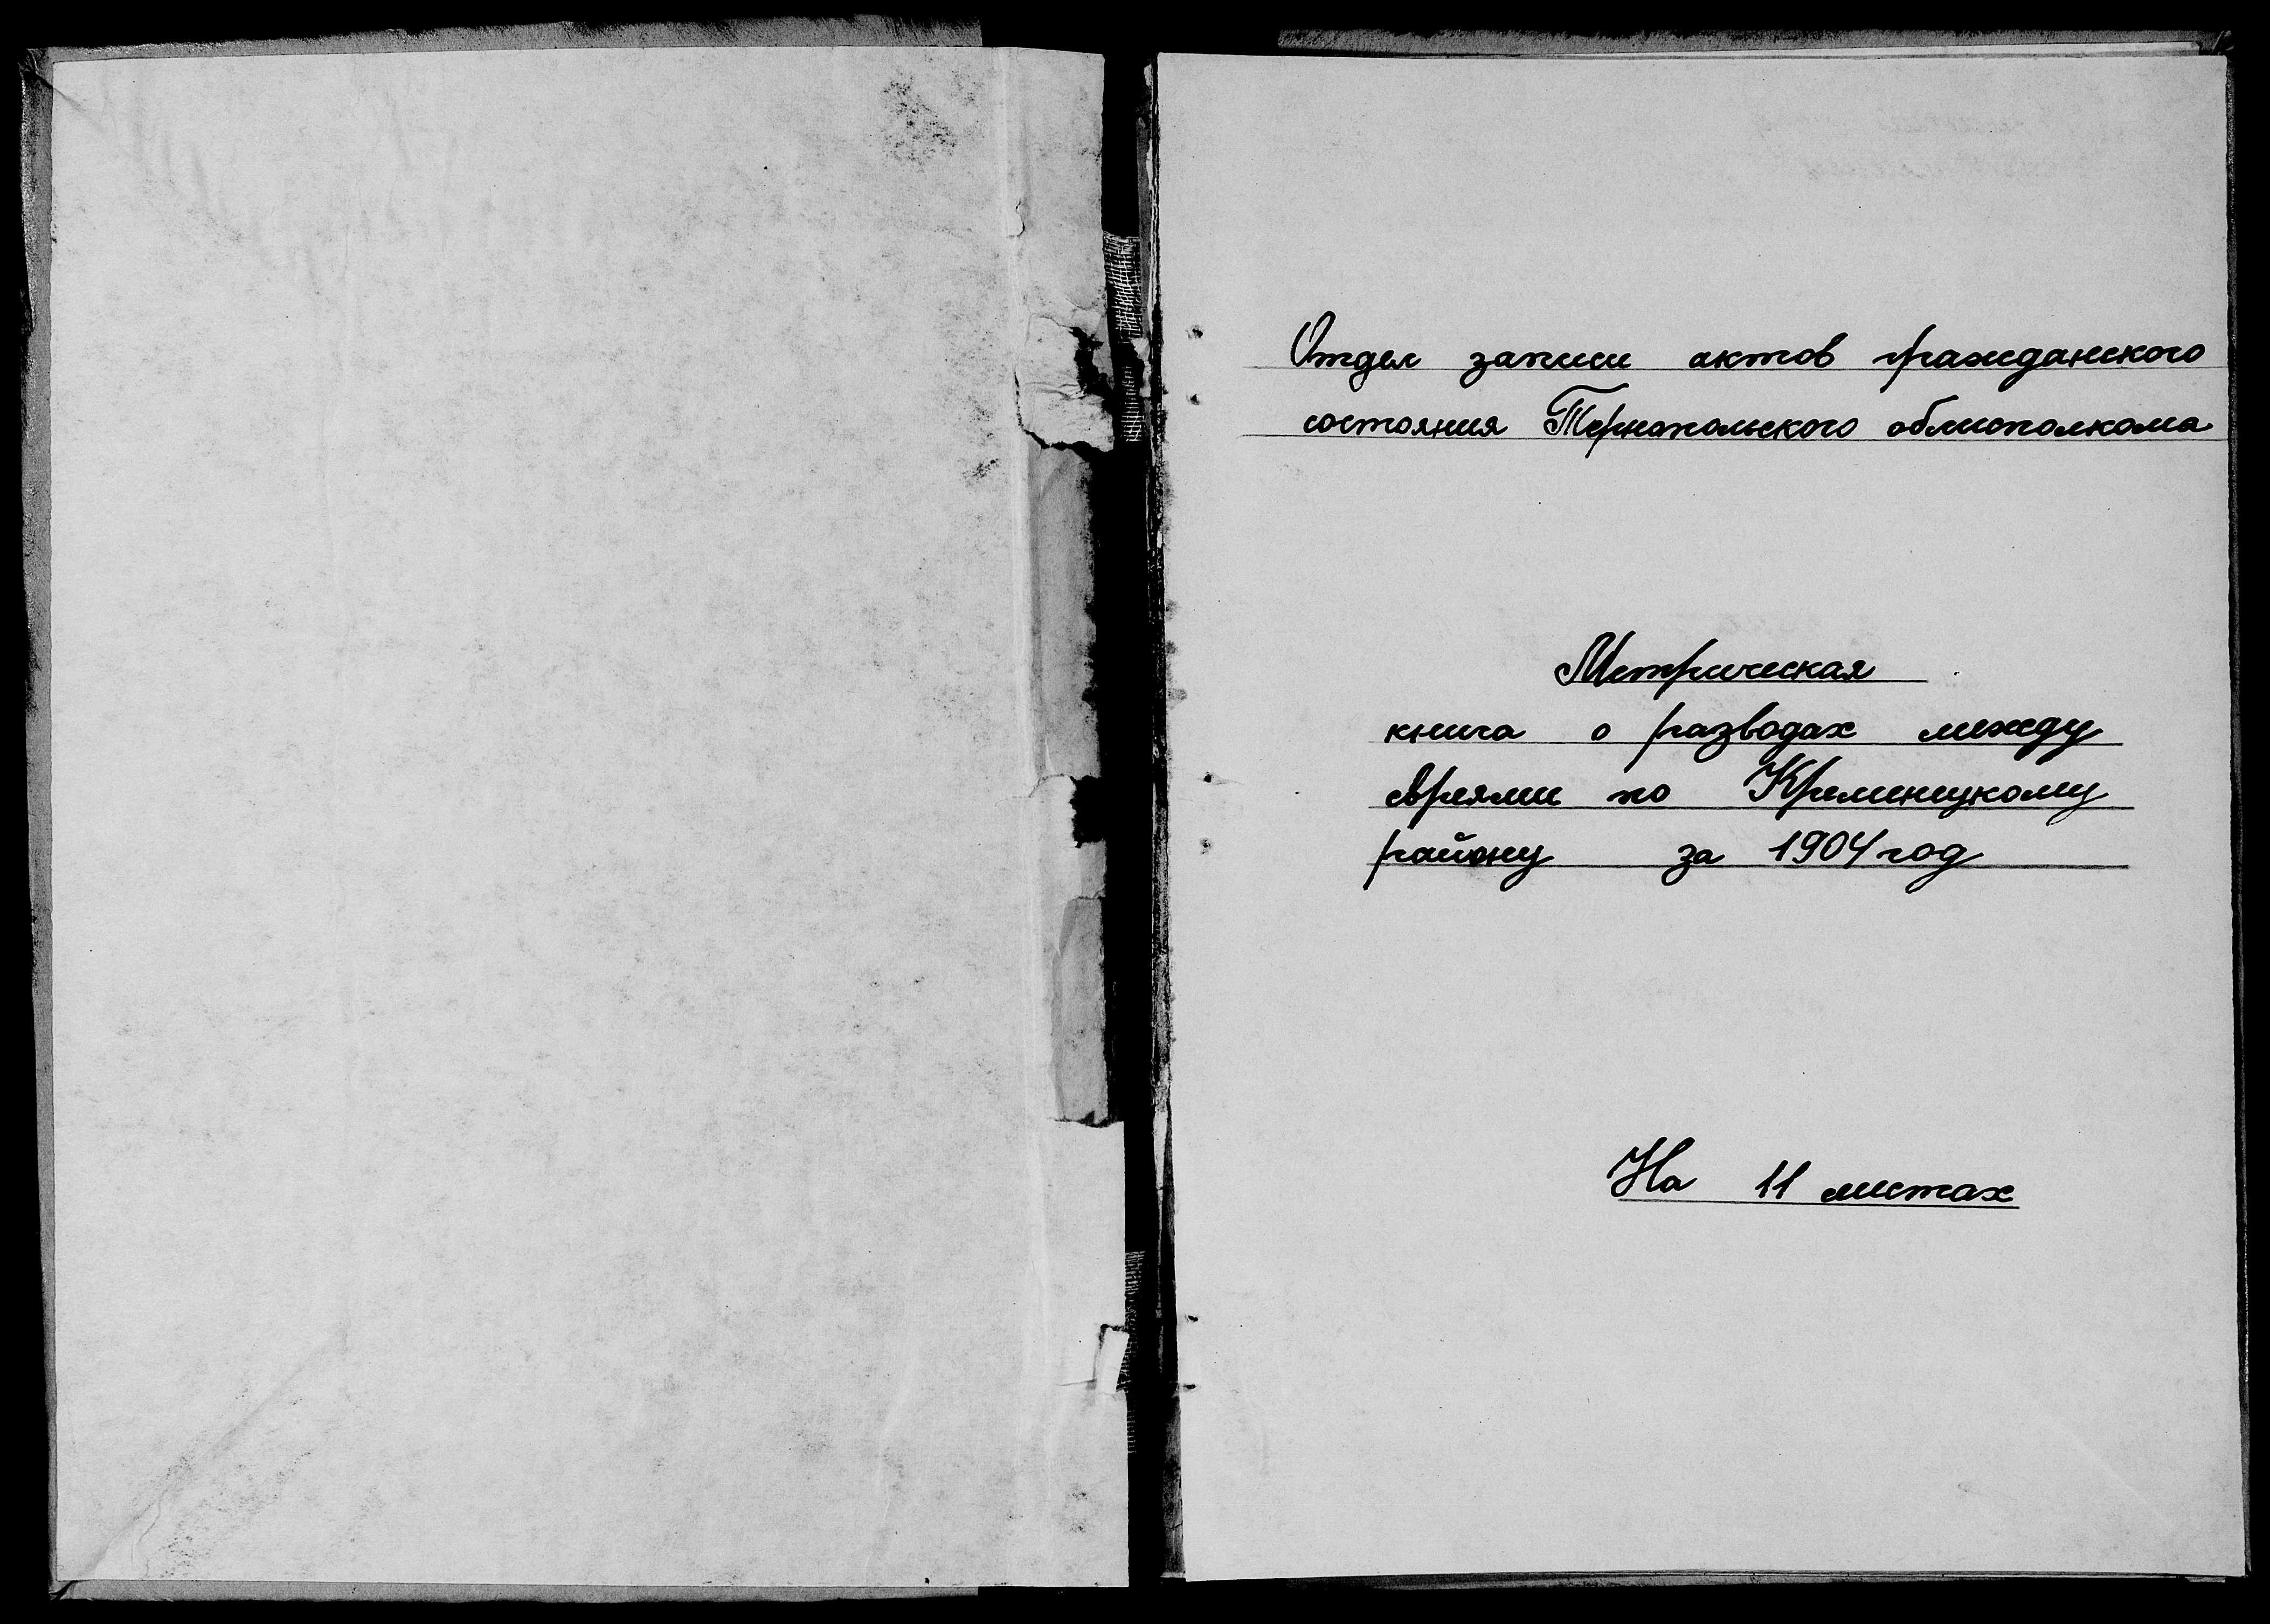 Отдел записи актов гражданского
состояния Тернопольского облисполкома
Метрическая
книга о разводах между
евреями по Кременецкому
району за 1904 год
На 11 листах